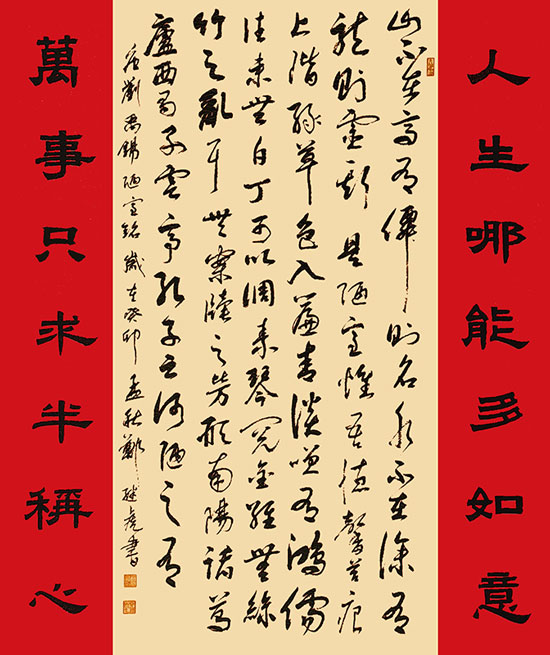 人生哪能多如意
山不在高有僊則名水不在深有
龍則靈斯是陋室惟吾德馨苔痕
上階綠草色入簾青談咲有鴻儒
往來無白丁可以調素琴閱金經無絲
竹之亂耳無案牘之勞形南陽諸葛
廬西蜀子雲亭孔子云何陋之有
唐劉禹錫陋室銘歲在癸卯孟秋鄭書
萬事只求半稱心